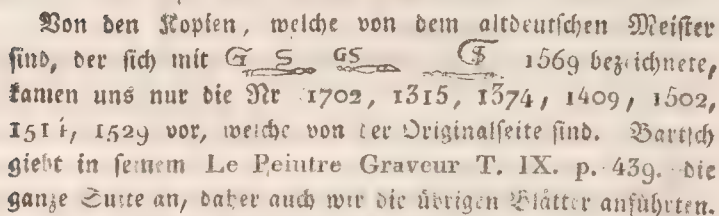 Von den Kopien, welche von dem altdeutschen Meister
sind, der sich mit G S GS GS 1569 bezeichnete,
kamen uns nur die Nr 1702, 1315, 1374, 1409, 1502,
1511, 1529 vor, welche von der Originalseite sind. Bartsch
giebt in seinem Le Peintre Graveur T. IX. p. 439. die
ganze Suite an, daher auch wir die übrigen Blätter anführten.